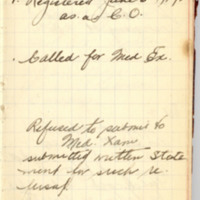 Registered June 5, 1917
as a C.O.
Called for Med Ex.
Refused to submit to
Med. Xam
submitted written State
ment for such re
fusal